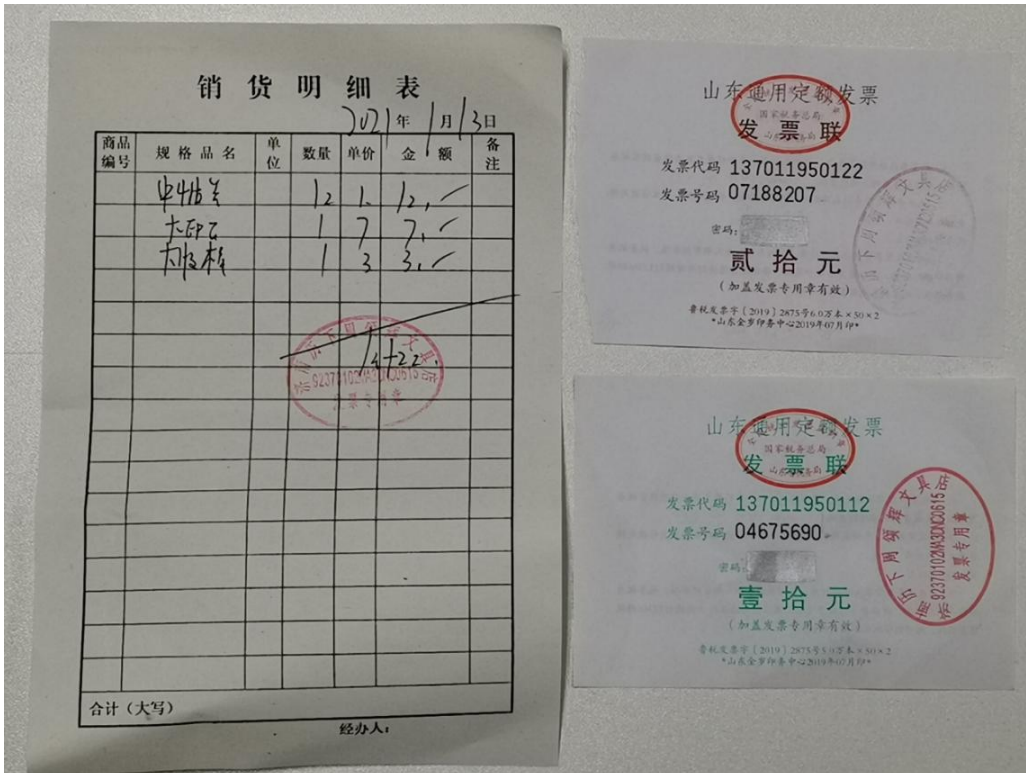 销货明细表
2021年1月13日
商品编号 规格品名 单位 数量 单价 金额 备注
12 1. 12.
1 7 7.
1 3 3.
22.
92370102MA3DNC0615
发票专用章
合计（大写）
经办人：
山东通用定额发票
国家税务总局
发票联
发票代码 137011950122
发票号码 07188207
密码：
贰拾元
（加盖发票专用章有效）
鲁税发票字〔2019〕2875号6.0万本×50×2
*山东金岁印务中心2019年07月印*
92370102MA3DNC0615
山东通用定额发票
国家税务总局
发票联
发票代码 137011950112
发票号码 04675690
密码：
壹拾元
（加盖发票专用章有效）
鲁税发票字〔2019〕2875号5.0万本×50×2
*山东金岁印务中心2019年07月印*
济南历下周颂辉文具店
92370102MA3DNC0615
发票专用章